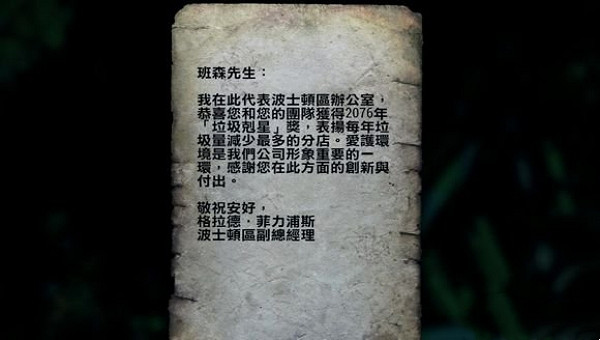 班森先生：
我在此代表波士頓區辦公室，
恭喜您和您的團隊獲得2076年
「垃圾剋星」獎，表揚每年垃
圾量減少最多的分店。愛護環
境是我們公司形象重要的一
環，感謝您在此方面的創新與
付出。
敬祝安好，
格拉德．菲力浦斯
波士頓區副總經理